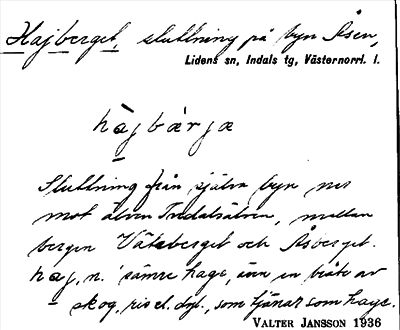 Hajberget, sluttning på byn Åsen,
Lidens sn, Indals tg, Västernorrl. l.
hajbärjæ
Sluttning från själva byn ner
mot älven Indalsälven, mellan
bergen Vätaberget och Åsberget.
haj, n. 'sämre hage, även en bit av
skog, ris el. dyl., som tjänat som hage.
VALTER JANSSON 1936